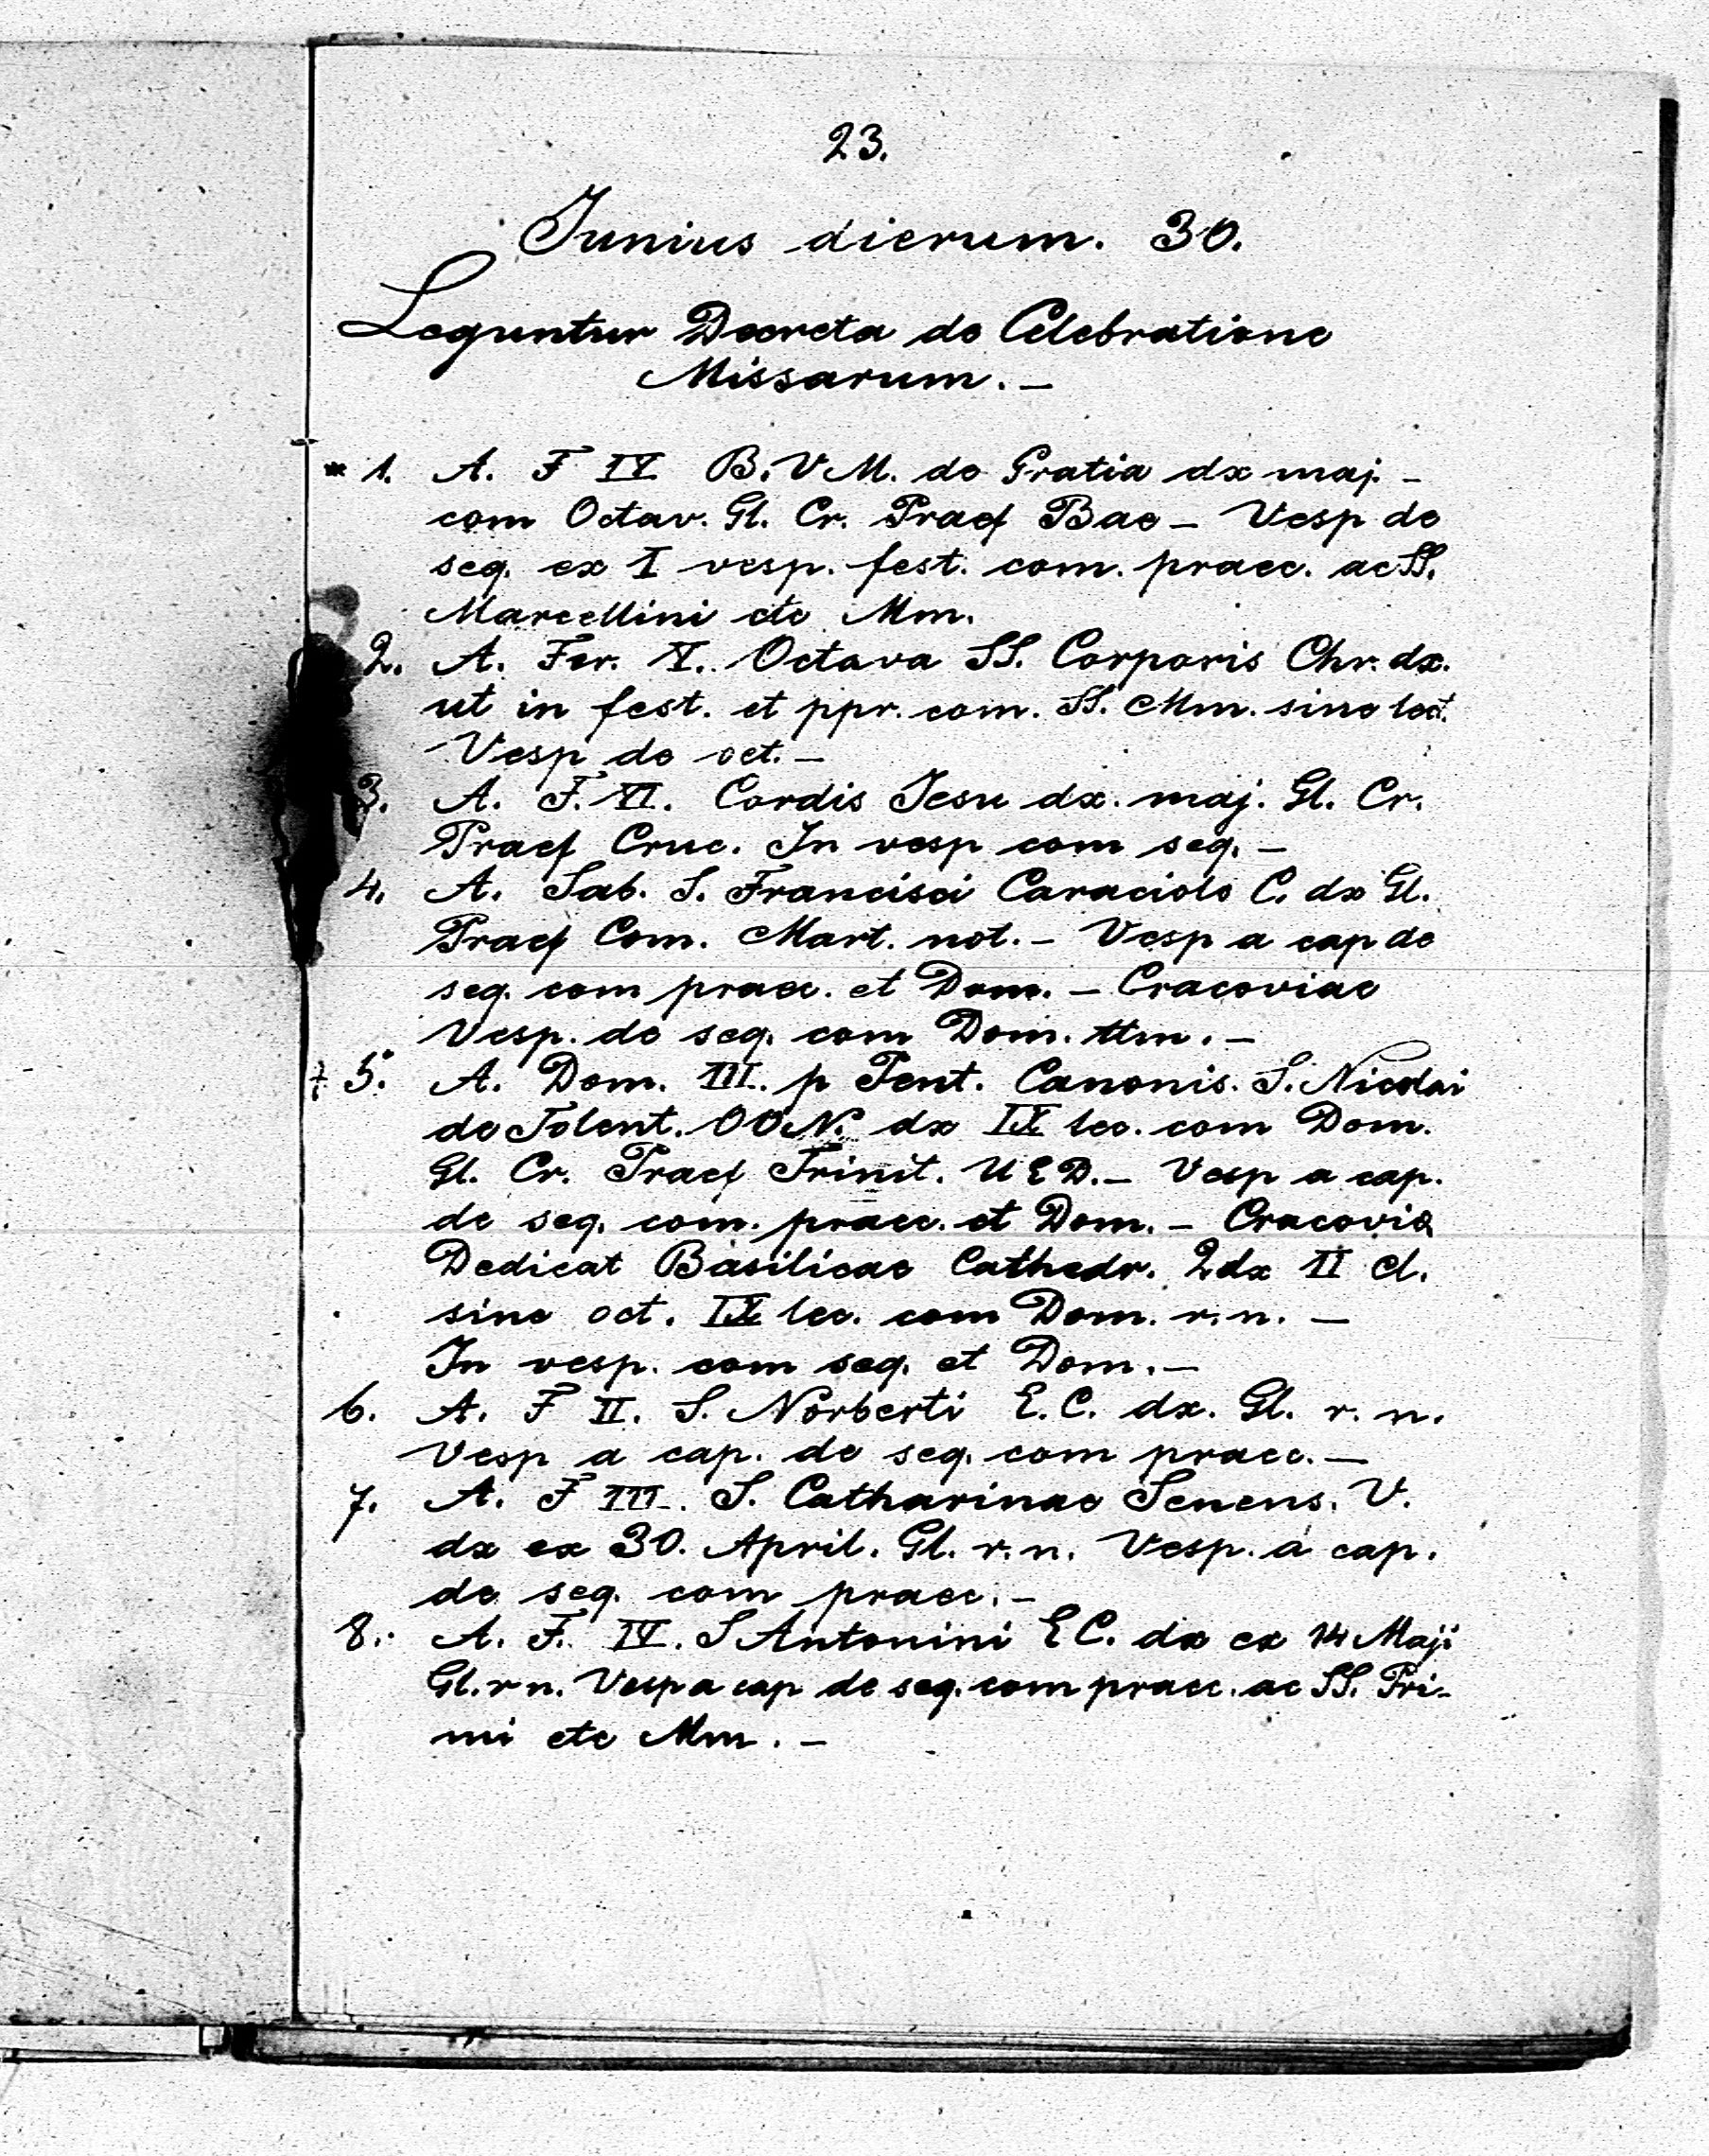 23.
Junius dierum. 30.
Leguntur Decreta de Celebratione
Missarum. —
* 1. A. F IV B. V M. de Gratia dx maj. —
com Octav. Gl. Cr. Praef Bae — Vesp de
seq. ex I vesp. fest. com. praec. ac SS.
Marcellini etc Mm.
2. A. Fer. V. Octava SS. Corporis Chr. dx.
ut in fest. et ppr. com. SS. Mm. sine lect.
Vesp de oct. —
3. A. F. VI. Cordis Jesu dx. maj. Gl. Cr.
Praef Cruc. In vesp com seq. —
4. A. Sab. S. Francisci Caraciolo C. dx Gl.
Praef Com. Mart. not. — Vesp a cap de
seq. com praec. et Dom. — Cracoviae
Vesp. de seq. com Dom. ttm. —
‡ 5. A. Dom. III. p Pent. Canonis. S. Nicolai
de Tolent. OON. dx IX lec. com Dom.
Gl. Cr. Praef Trinit. U E D. — Vesp a cap.
de seq. com. praec. et Dom. — Cracovia
Dedicat Basilicae Cathedr. 2dx II cl.
sine oct. IX lec. com Dom. r. n. —
In vesp. com seq. et Dom. —
6. A. F II. S. Norberti E. C. dx. Gl. r. n.
Vesp a cap. de seq. com praec. —
7. A. F III. S. Catharinae Senens. V.
dx ex 30. April. Gl. r. n. Vesp. a cap.
de seq. com praec. —
8. A. F. IV. S Antonini E C. dx ex 14 Maji
Gl. r n. Vesp a cap de seq. com praec. ac SS. Pri-
mi etc Mm. —